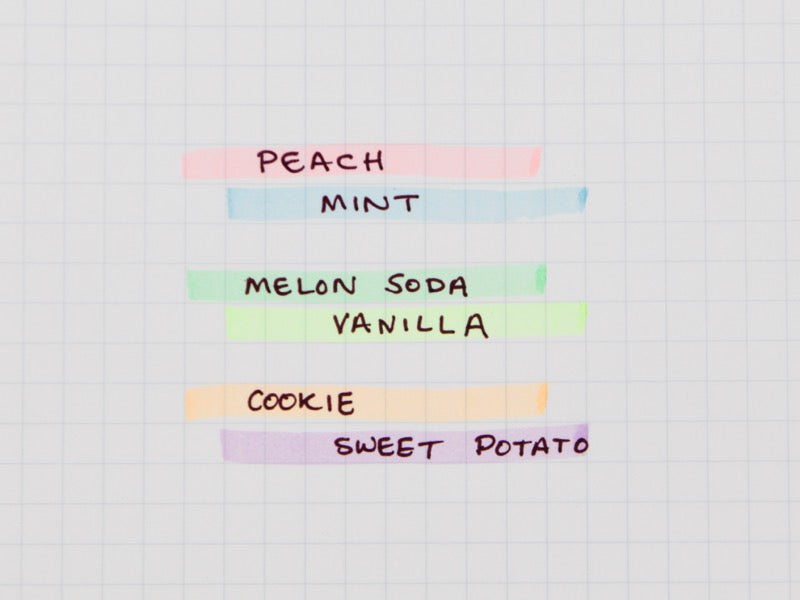 PEACH
MINT
MELON SODA
VANILLA
COOKIE
SWEET POTATO